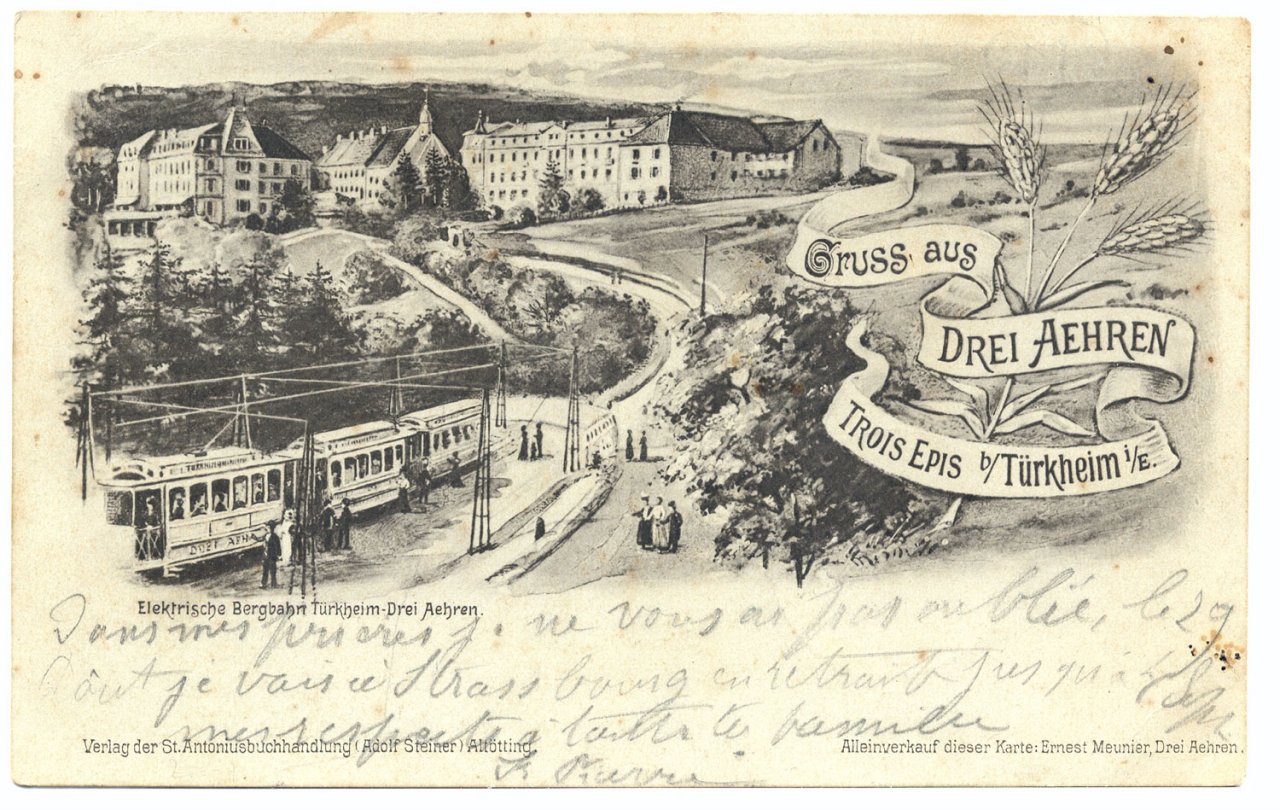 Gruss aus
Drei Aehren
Trois Epis b/Türkheim i/E.
Elektrische Bergbahn Türkheim-Drei Aehren.
Dans mes prieres je ne vous ai pas oublié, le 29
Août je vais a Strassbourg en retraite jusqu'a
mes respects a toutte la famille
Verlag der St. Antoniusbuchhandlung (Adolf Steiner) Altötting.
Alleinverkauf dieser Karte: Ernest Meunier, Drei Aehren.